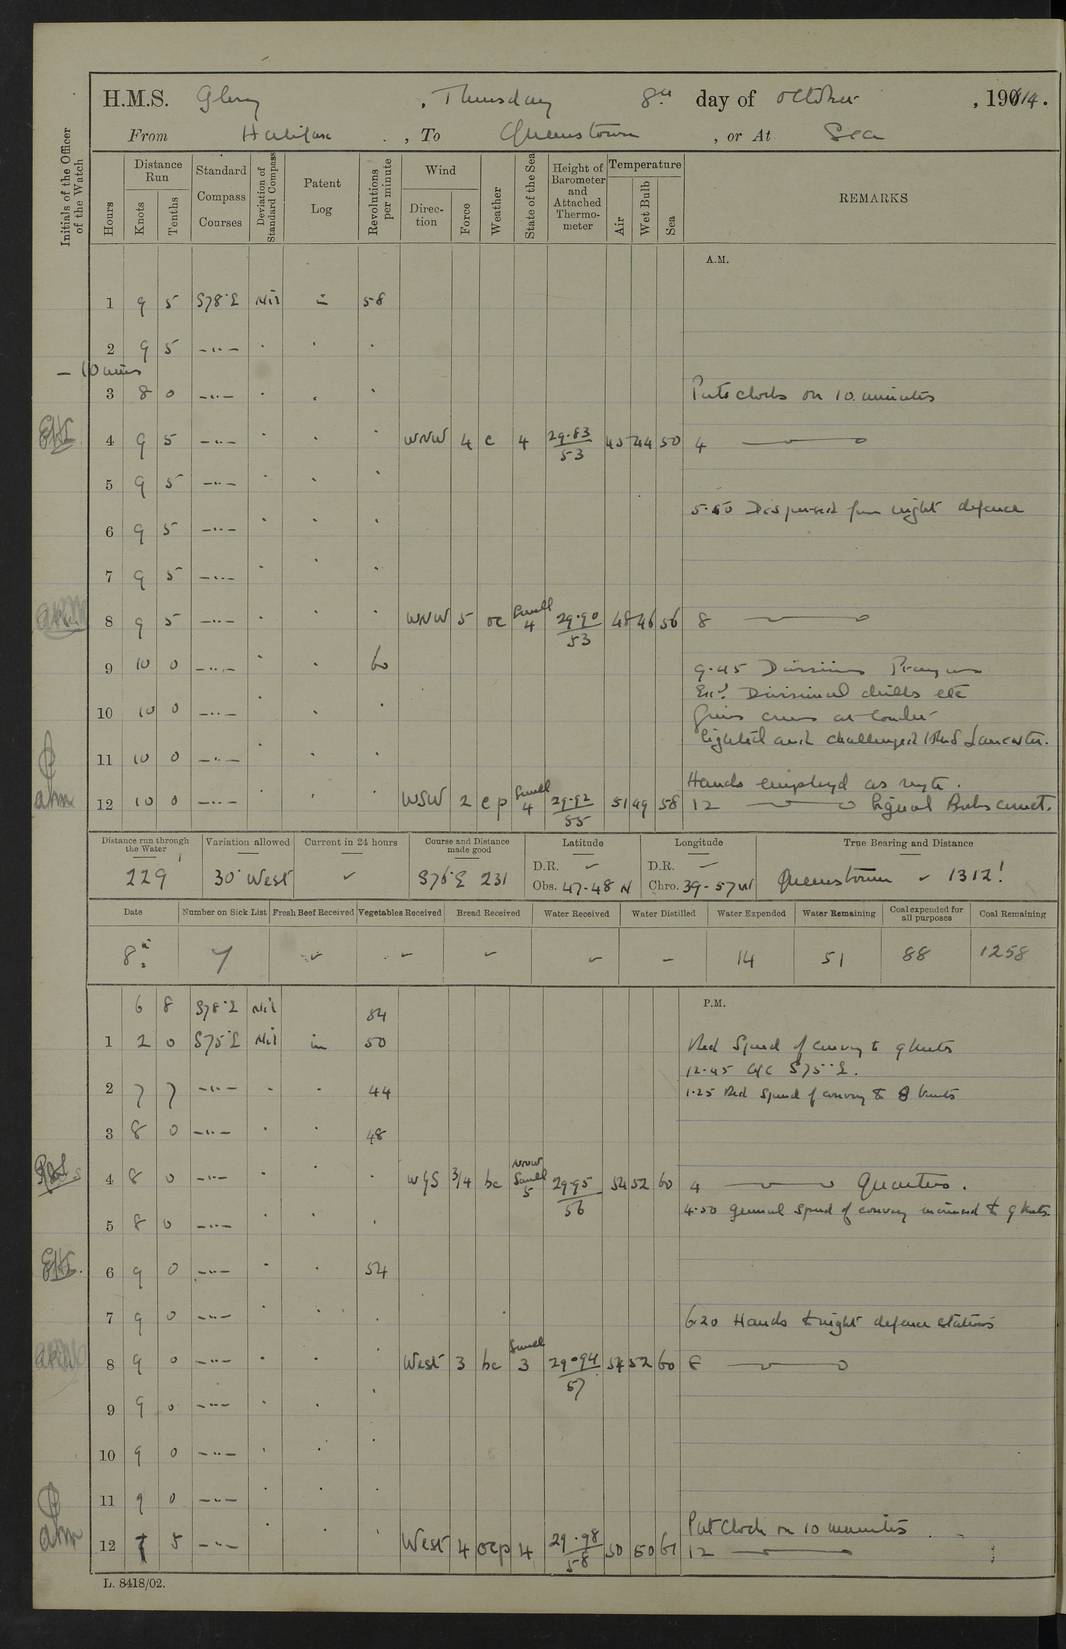 H.M.S. Glory, Thursday 8th day of October, 1914.
From Halifax, To Queenstown, or At Sea
Initials of the Officer of the Watch
Hours
Distance Run
Knots
Tenths
Standard Compass Courses
Deviation of Standard Compass
Patent Log
Revolutions per minute
Wind
Direction
Force
Weather
State of the Sea
Height of Barometer and Attached Thermometer
Temperature
Air
Wet Bulb
Sea
REMARKS
A.M.
1 9 5 S78°E Nil in 58
2 9 5 -"-
- 10 mins
3 8 0 -"- Puts clocks on 10 minutes
4 9 5 -"- WNW 4 c 4 29.83/53 45 44 50 4
5 9 5 -"-
5.50 Dispersed from night defence
6 9 5 -"-
7 9 5 -"-
8 9 5 -"- WNW 5 oc Swell 4 29.90/53 48 46 56 8
9 10 0 -"- 60 9.45 Divisions Prayers
Divisional drills etc
10 10 0 -"- Guns crews at loader
Sighted and challenged HMS Lancaster.
11 10 0 -"-
Hands employed as reqte.
12 10 0 -"- WSW 2 c p Swell 4 29.92/55 51 49 58 12 Signal Books correct.
Distance run through the Water
Variation allowed
Current in 24 hours
Course and Distance made good
Latitude
Longitude
True Bearing and Distance
229 30° West S76°E 231
D.R. Obs. 47-48 N
D.R. Chro. 39-57 W
Queenstown 1312'
Date
Number on Sick List
Fresh Beef Received
Vegetables Received
Bread Received
Water Received
Water Distilled
Water Expended
Water Remaining
Coal expended for all purposes
Coal Remaining
8th 7 - 14 51 88 1258
P.M.
6 8 S78°E Nil 54
1 2 0 S75°E Nil in 50 Red Speed of convoy to 9 knots
12.45 A/C S75°E.
2 7 7 -"- 44 1.25 Red Speed of convoy to 8 knots
3 8 0 -"- 48
4 8 0 -"- 3/4 bc NNW Swell 5 29.95/56 54 52 60 4 Quarters.
4.50 General speed of convoy increased to 9 knots.
5 8 0 -"-
6 9 0 -"- 54
7 9 0 -"- 6.20 Hands to night defence stations
8 9 0 -"- West 3 bc Swell 3 29.94/57 54 52 60 8
9 9 0 -"-
10 9 0 -"-
11 9 0 -"-
Put Clock on 10 minutes
12 7 5 -"- West 4 ocp 4 29.98/58 50 50 61 12
L. 8418/02.